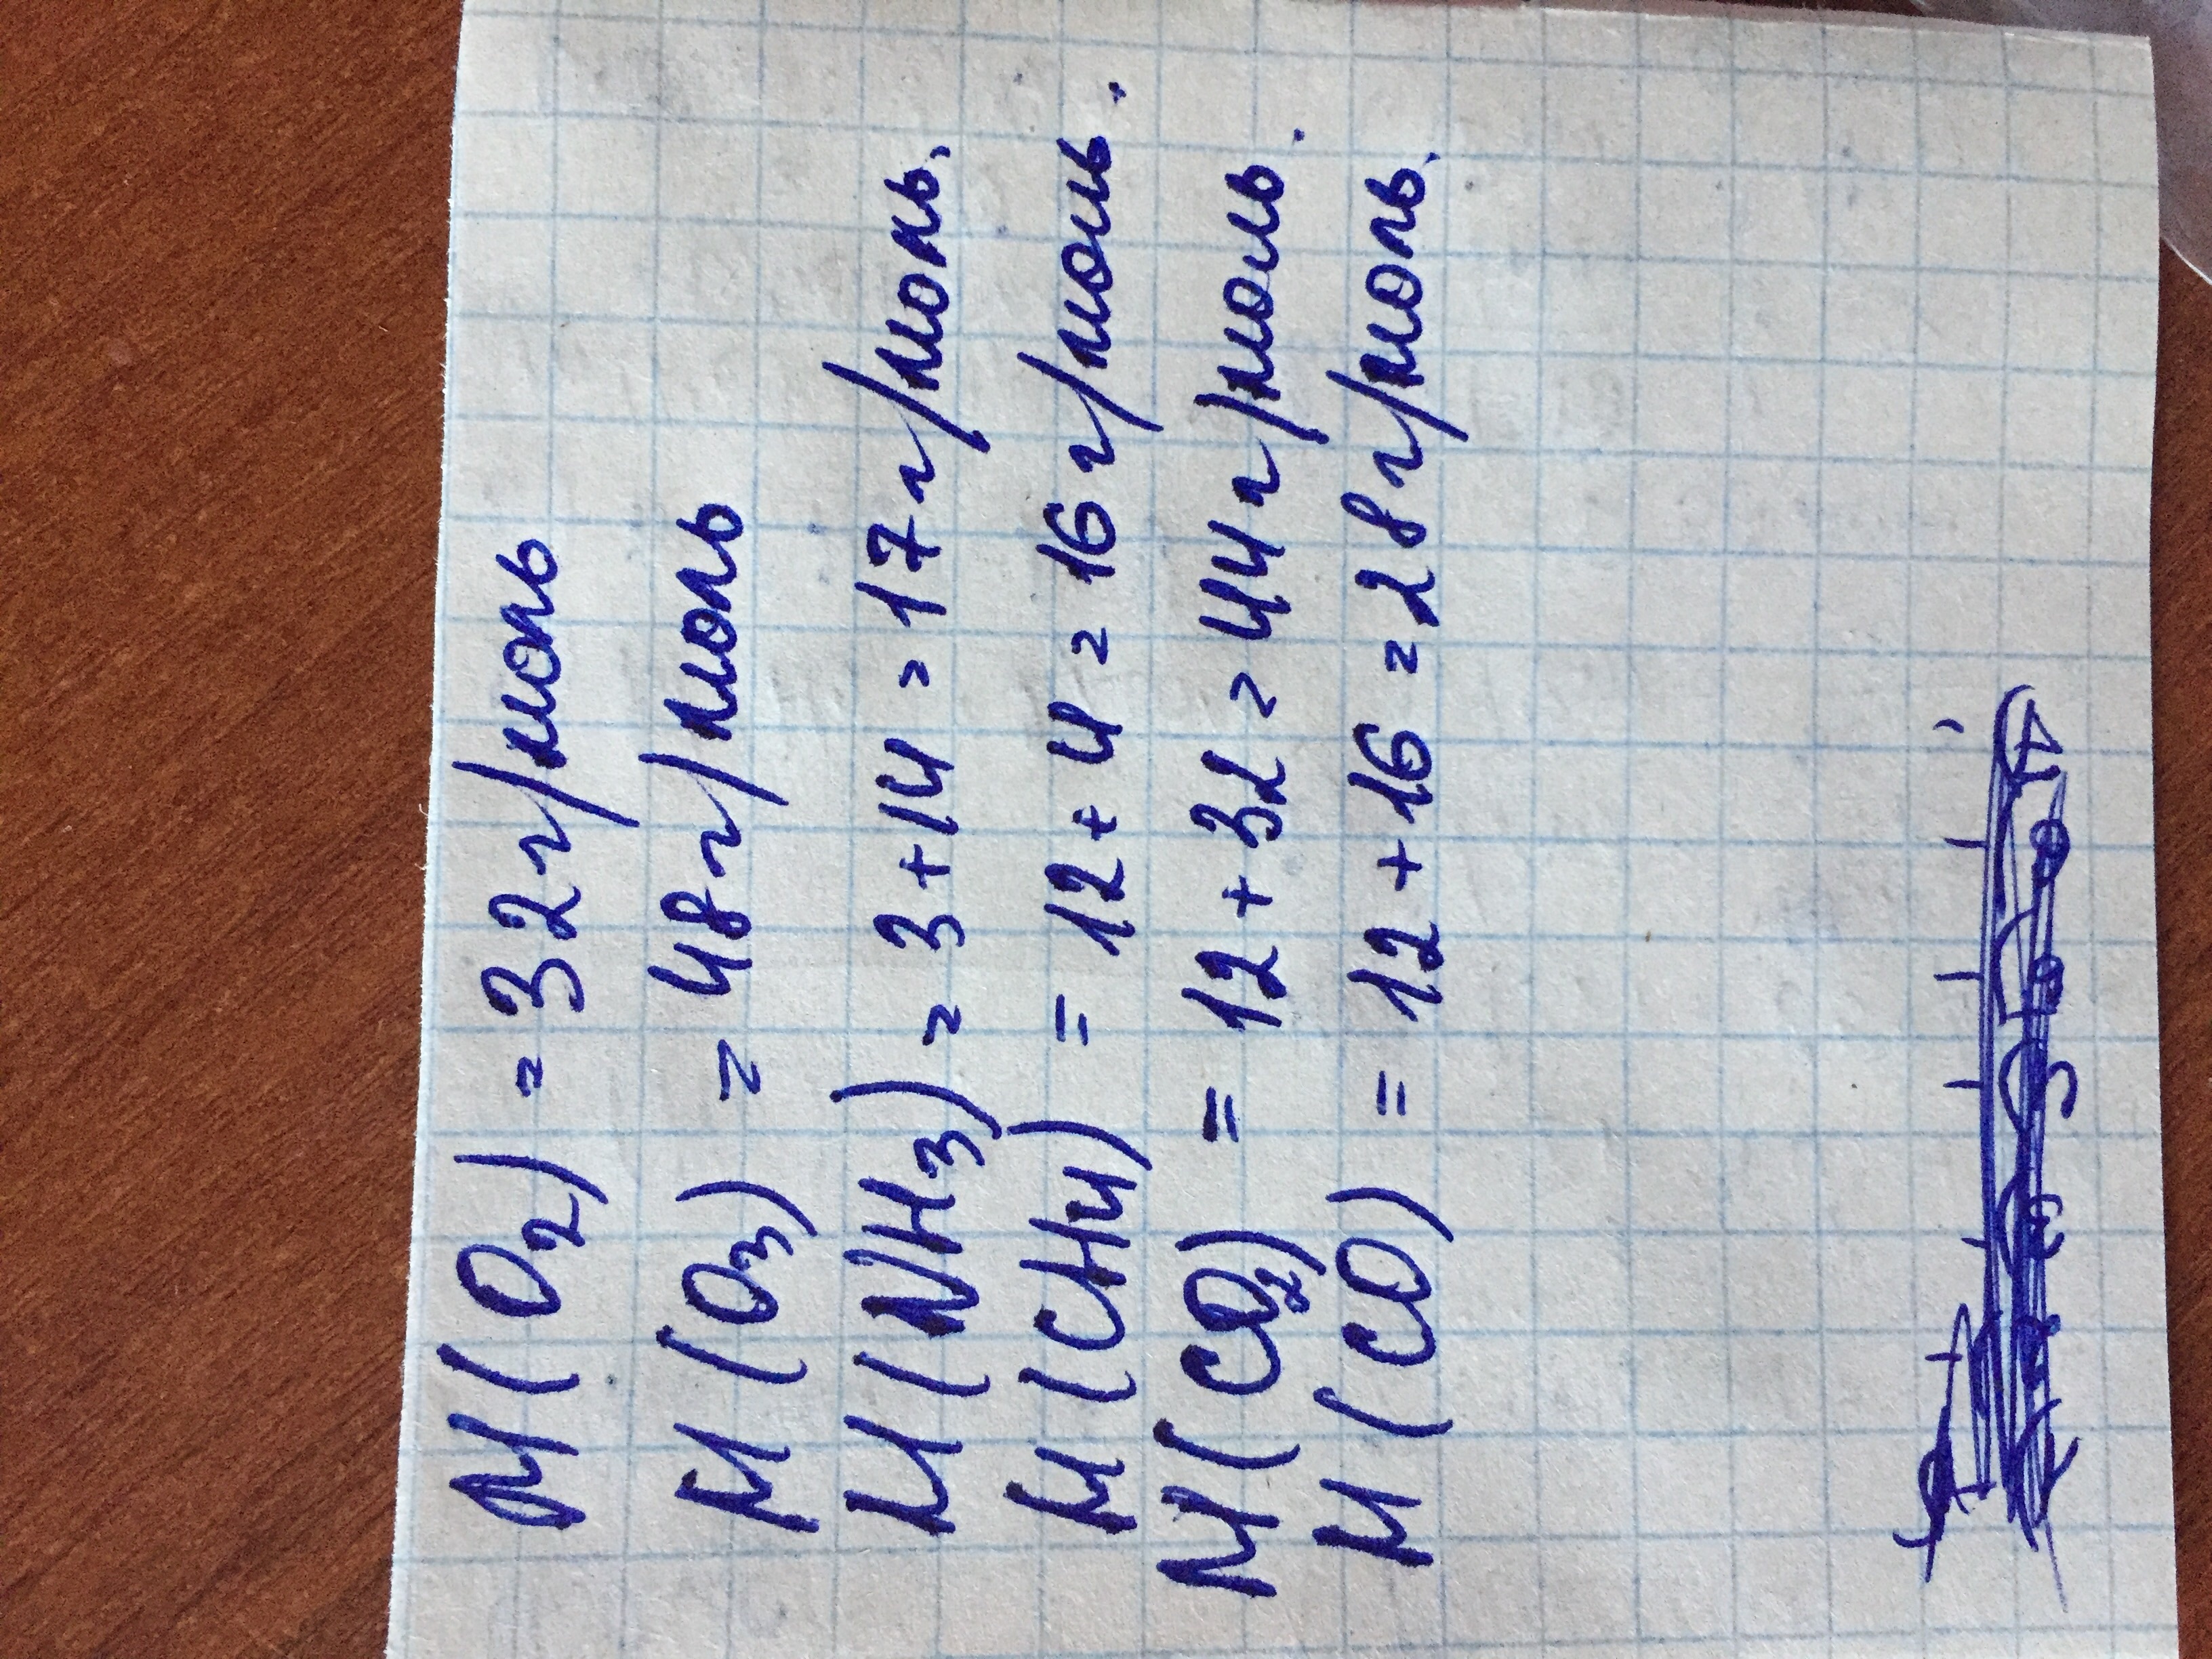 М(O₂) = 32 г/моль
М(O₃) = 48 г/моль
М(NH₃) = 3+14 = 17 г/моль.
М(CH₄) = 12+4 = 16 г/моль.
М(CO₂) = 12+32 = 44 г/моль.
М(CO) = 12+16 = 28 г/моль.